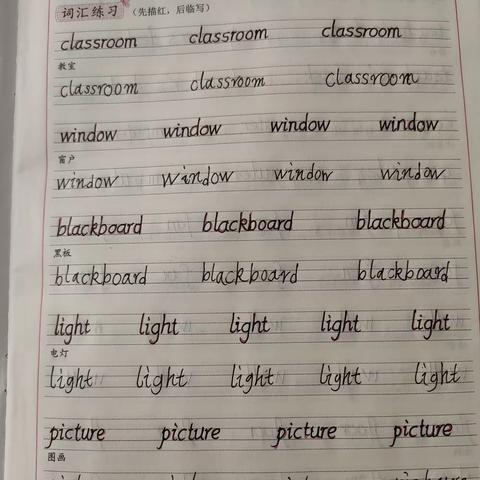 词汇练习 (先描红，后临写)
classroom classroom classroom
教室
classroom classroom classroom
window window window window
窗户
window window window window
blackboard blackboard blackboard
黑板
blackboard blackboard blackboard
light light light light light
电灯
light light light light light
picture picture picture picture
图画